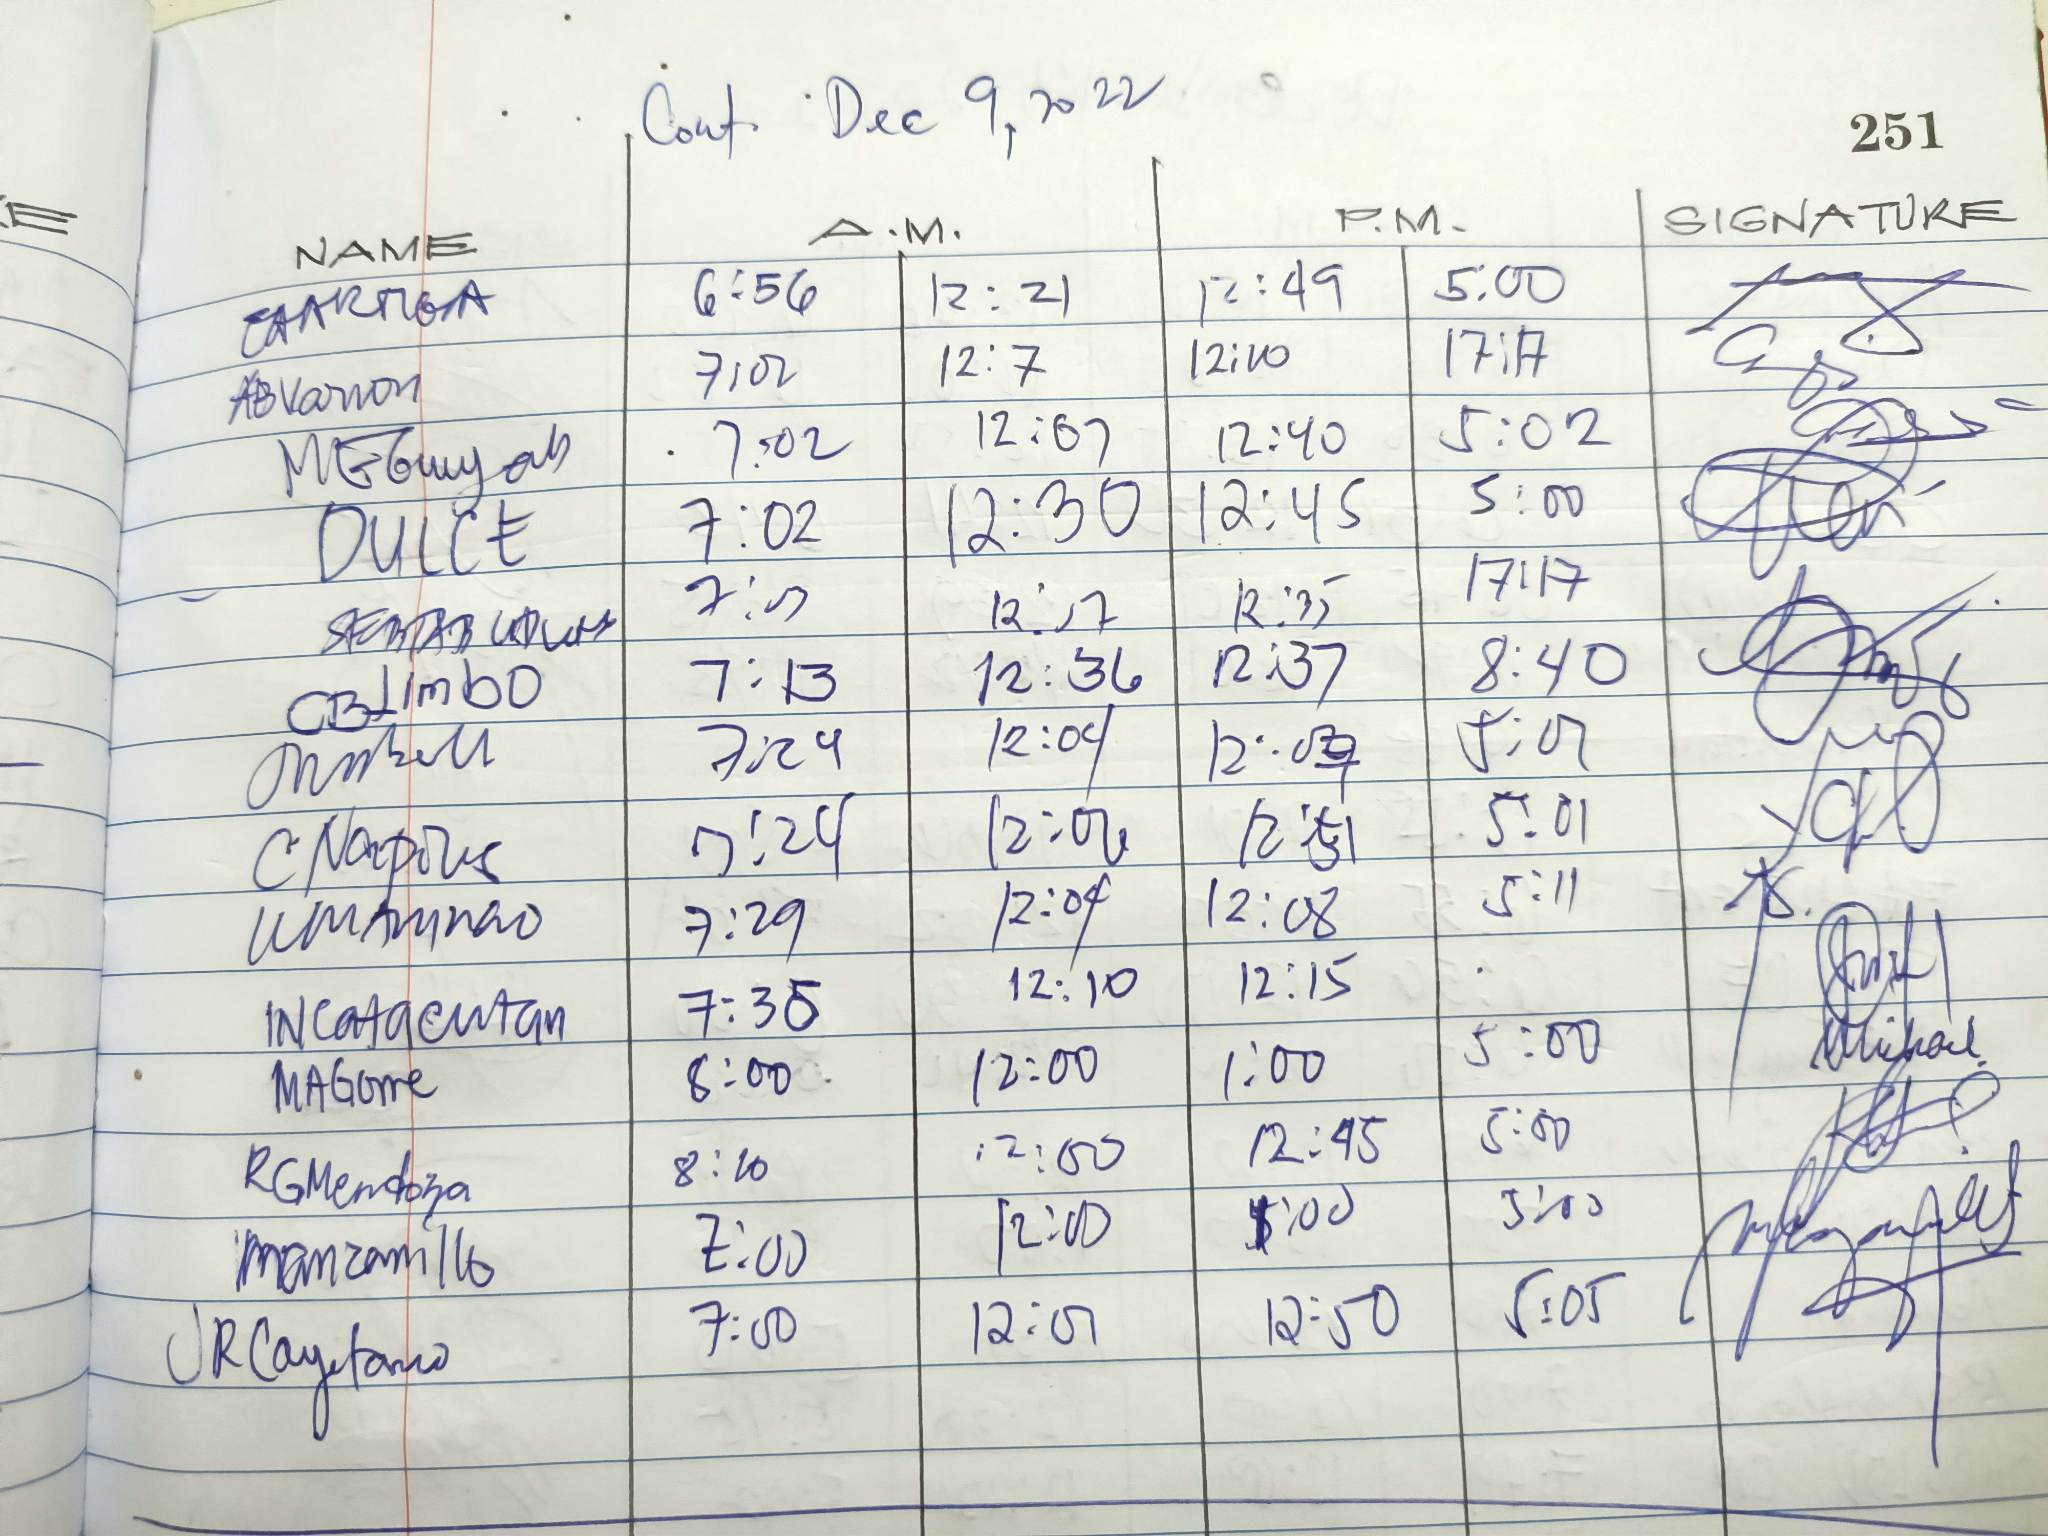 KE
Cont. Dec 9, 2022
251
NAME A.M. P.M. SIGNATURE
6:56 12:21 12:49 5:00
ABVarron 7:02 12:7 12:10 17:17
MEGuuyab 7:02 12:07 12:40 5:02
DULCE 7:02 12:30 12:45 5:00
12:17 12:35 17:17
CBLimbo 7:13 12:36 12:37 8:40
7:24 12:04 5:01
C Napoles 7:24 12:06 12:51 5:01
7:29 12:04 12:08 5:11
INCatacutan 7:35 12:10 12:15
MAGome 8:00 12:00 1:00 5:00 Michael
RGMendoza 8:10 12:00 12:45 5:00
manzanillo 7:00 12:00 1:00 5:00
JRCayetano 7:00 12:01 12:50 5:05